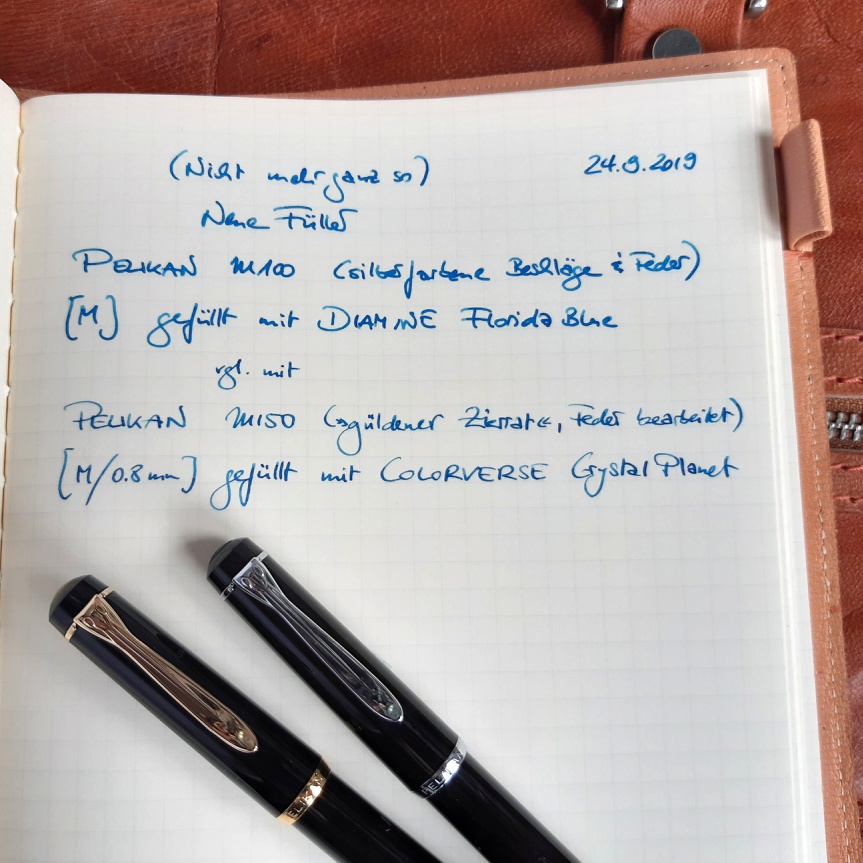 (Nicht mehr ganz so) 24.9.2019
Neue Füller
PELIKAN M100 (silberfarbene Beschläge & Feder)
[M] gefüllt mit DIAMINE Florida Blue
vgl. mit
PELIKAN M150 (»güldener Zierrat«, Feder bearbeitet)
[M/0.8mm] gefüllt mit COLORVERSE Crystal Planet